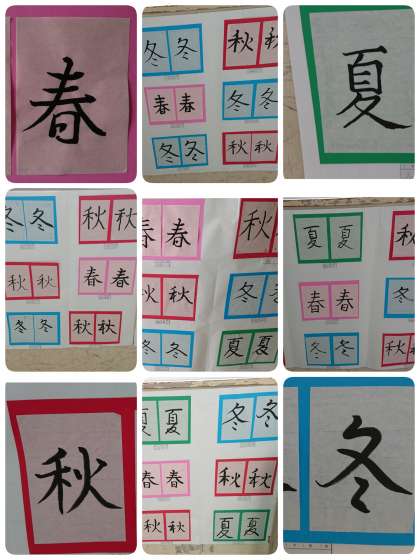 春
冬冬 秋秋
春春 冬冬
冬冬 秋秋
夏
冬冬 秋秋
秋秋 春春
冬冬 秋秋
春春 秋
秋秋 冬冬
冬冬 夏夏
夏夏
春春 冬
冬冬 秋秋
秋
夏夏 冬冬
春春 秋秋
秋秋 夏夏
冬